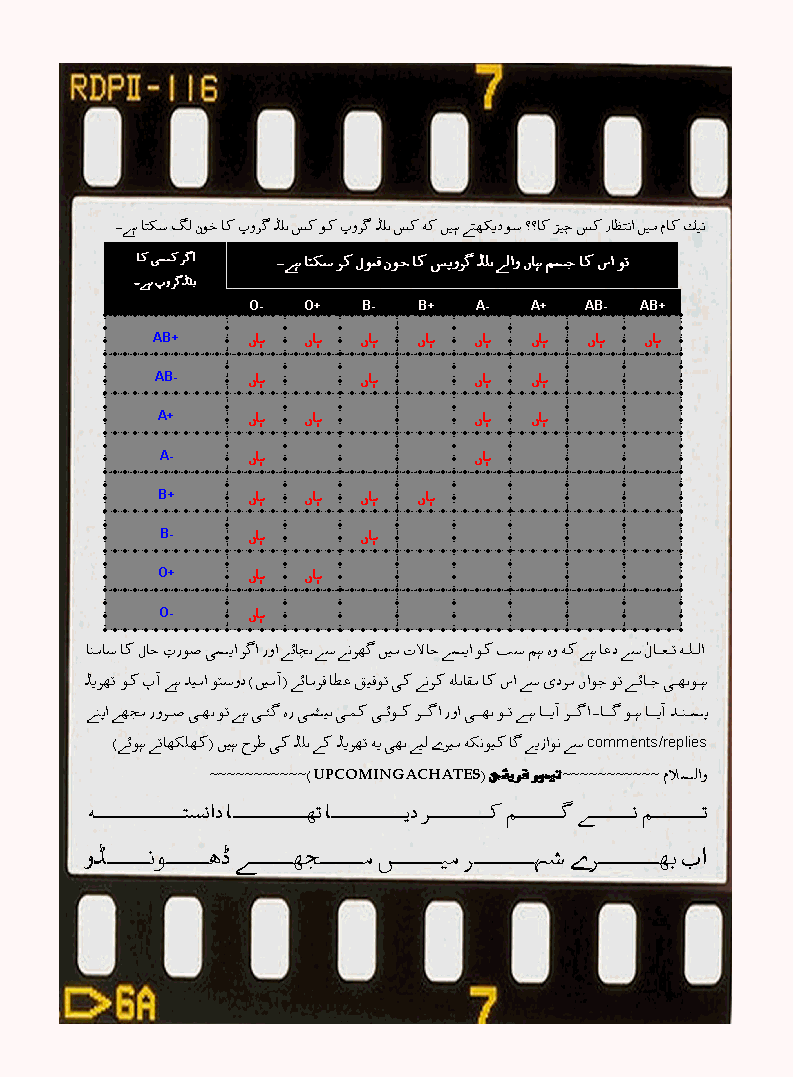 RDPII-116 7
نیک کام میں انتظار کس چیز کا؟؟ سو دیکھتے ہیں کہ کس بلڈ گروپ کو کس بلڈ گروپ کا خون لگ سکتا ہے۔
اگر کسی کا تو اس کا جسم ہاں والے بلڈ گروپس کا خون قبول کر سکتا ہے۔
بلڈگروپ ہے۔
O- O+ B- B+ A- A+ AB- AB+
AB+ ہاں ہاں ہاں ہاں ہاں ہاں ہاں ہاں
AB- ہاں ہاں ہاں ہاں
A+ ہاں ہاں ہاں ہاں
A- ہاں ہاں
B+ ہاں ہاں ہاں ہاں
B- ہاں ہاں
O+ ہاں ہاں
O- ہاں
اللہ تعالٰی سے دعا ہے کہ وہ ہم سب کو ایسے حالات میں گھرنے سے بچائے اور اگر ایسی صورتِ حال کا سامنا
ہو بھی جائے تو جواں مردی سے اس کا مقابلہ کرنے کی توفیق عطا فرمائے (آمیں) دوستو امید ہے آپ کو تھریڈ
پسند آیا ہو گا۔اگر آیا ہے تو بھی اور اگر کوئی کمی بیشی رہ گئی ہے تو بھی ضرور مجھے اپنے
comments/replies سے نوازیے گا کیونکہ میرے لیے بھی یہ تھریڈ کے بلڈ کی طرح ہیں (کھلکھاتے ہوئے)
والسلام ~~~~~~~~~~~تیمو قریشی (UPCOMING ACHATES)~~~~~~~~~~~
تم نے گم کر دیا تھا دانستہ
اب بھرے شہر میں مجھے ڈھونڈو
6A 7